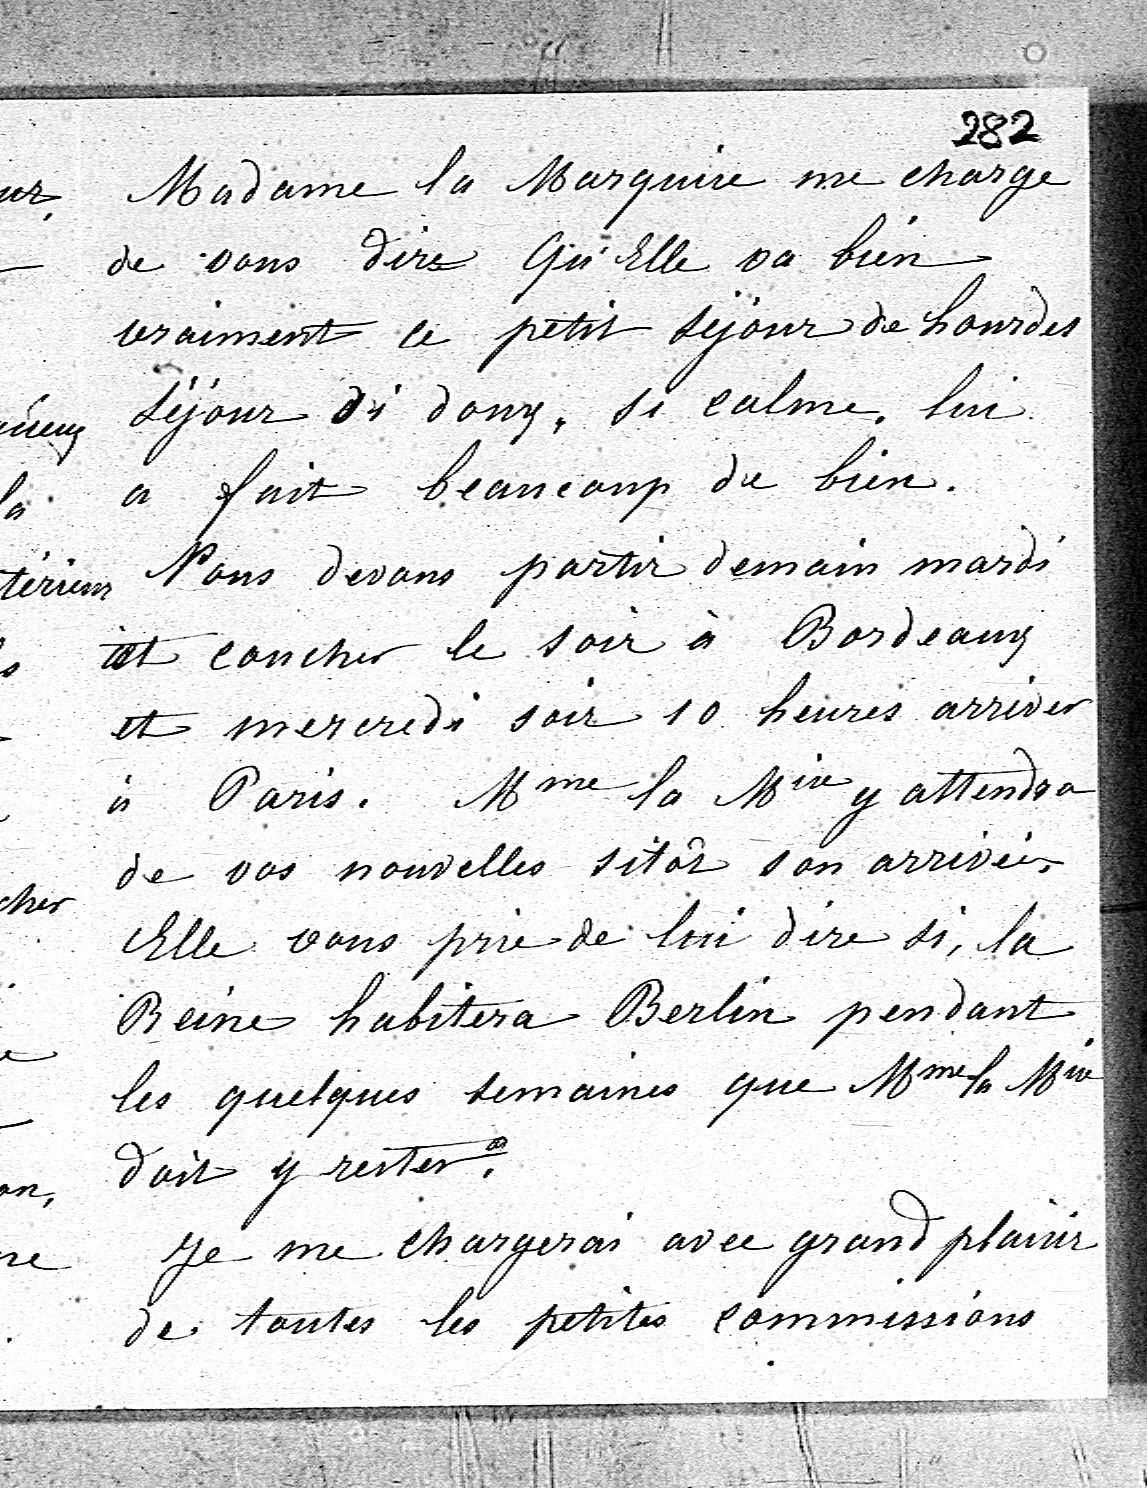 282
Madame la Marquise me charge
de vous dire Qu'Elle va bien
vraiment ce petit séjour de Lourdes
séjour si doux, si calme, lui
a fait beaucoup de bien.
Nous devons partir demain mardi
et coucher le soir à Bordeaux
et mercredi soir 10 heures arriver
à Paris. Mme la Mise y attendra
de vos nouvelles sitôt son arrivée.
Elle vous prie de lui dire si, la
Reine habitera Berlin pendant
les quelques semaines que Mme la Mise
doit y rester.
Je me chargerai avec grand plaisir
de toutes les petites commissions